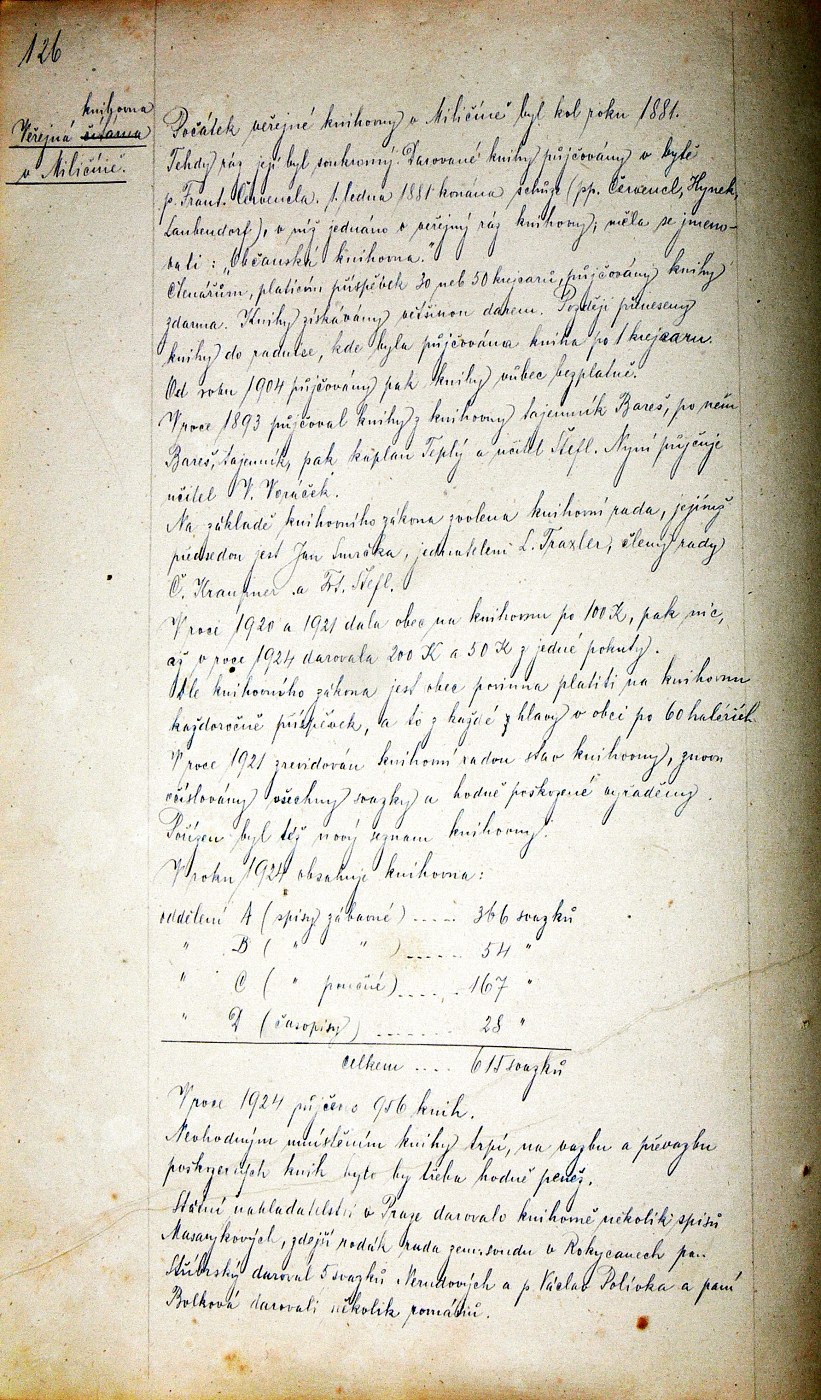 126
knihovna
Veřejná čítárna
v Miličíně.
Počátek veřejné knihovny v Miličíně byl kol roku 1881.
Tehdy ráz její byl soukromý. Darované knihy půjčovány v bytě
p. Frant. Červencla. 1. ledna 1881 konána schůze (pp. Červencl, Hynek,
Laubendorf), v níž jednáno o veřejný ráz knihovny; měla se jmeno-
vati: „Občanská knihovna."
Čtenářům, platícím příspěvek 30 neb 50 krejcarů, půjčovány knihy
zdarma. Knihy získávány většinou darem. Později přeneseny
knihy do radnice, kde byla půjčována kniha po 1 krejcaru.
Od roku 1904 půjčovány pak knihy vůbec bezplatně.
V roce 1893 půjčoval knihy z knihovny tajemník Bareš, po něm
Bareš, tajemník, pak kaplan Teplý a učitel Štefl. Nyní půjčuje
učitel V. Voráček.
Na základě knihovního zákona zvolena knihovní rada, jejímž
předsedou jest Jan Smrčka, jednatelem L. Traxler, členy rady
Č. a Frt. Štefl.
V roce 1920 a 1921 dala obec na knihovnu po 100 K, pak nic,
až v roce 1924 darovala 200 K a 50 K z jedné pokuty.
Dle knihovného zákona jest obec povinna platiti na knihovnu
každoročně příspěvek, a to z každé hlavy v obci po 60 haléřích.
V roce 1921 zrevidován knihovní radou stav knihovny, znovu
očíslovány všechny svazky a hodně poškozené vyřaděny.
Pořízen byl též nový seznam knihovny.
V roku 1924 obsahuje knihovna:
oddělení A (spisy zábavné) ..... 366 svazků
" B ( " " ) ...... 54 "
" C ( " poučné) ...... 167 "
" D (časopisy) ....... 28 "
celkem .... 615 svazků
V roce 1924 půjčeno 956 knih.
Nevhodným umístěním knihy trpí, na vazbu a převazbu
poškozených knih bylo by třeba hodně peněz.
Státní nakladatelství v Praze darovalo knihovně několik spisů
Masarykových, zdejší rodák rada zem. soudu v Rokycanech pan
Stříbrský daroval 5 svazků Nerudových a p. Václav Polívka a paní
Bolková darovali několik románů.